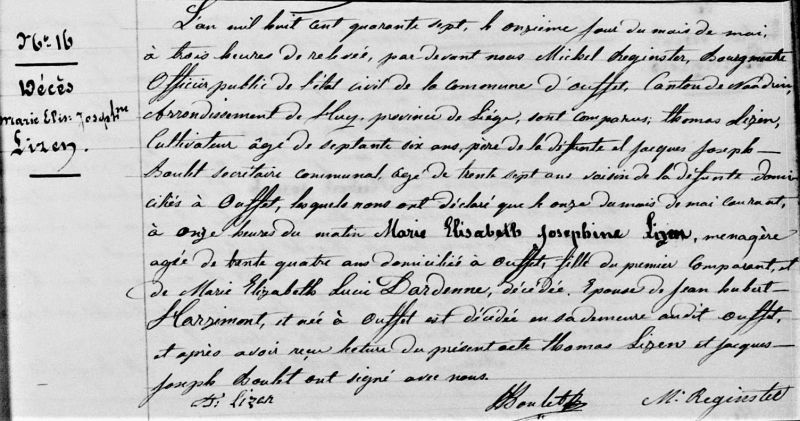 No. 16
Décès
Marie Elis. Josephne
Lizen.
L'an mil huit cent quarante sept, le onzième jour du mois de mai,
à trois heures de relevée, par devant nous Michel Reginster, Bourgmestre
Officier public de l'état civil de la commune d'Ouffet, Canton de Nandrin,
Arrondissement de Huy, province de Liége, sont comparus; Thomas Lizen,
Cultivateur âgé de septante six ans, père de la défunte et Jacques Joseph
Boulet secrétaire communal, âgé de trente sept ans voisin de la défunte domi-
ciliés à Ouffet, lesquels nous ont déclaré que le onze du mois de mai courant,
à onze heures du matin Marie Elisabeth Josephine Lizen, menagère
agée de trente quatre ans domiciliée à Ouffet, fille du premier comparant, et
de Marie Elizabeth Lucie Dardenne, décédée. Epouse de Jean hubert
Harzimont, et née à Ouffet est décédée en sa demeure audit Ouffet,
et après avoir reçu lecture du présent acte Thomas Lizen et Jacques
Joseph Boulet ont signé avec nous.
Lizen
Boulet
M. Reginster